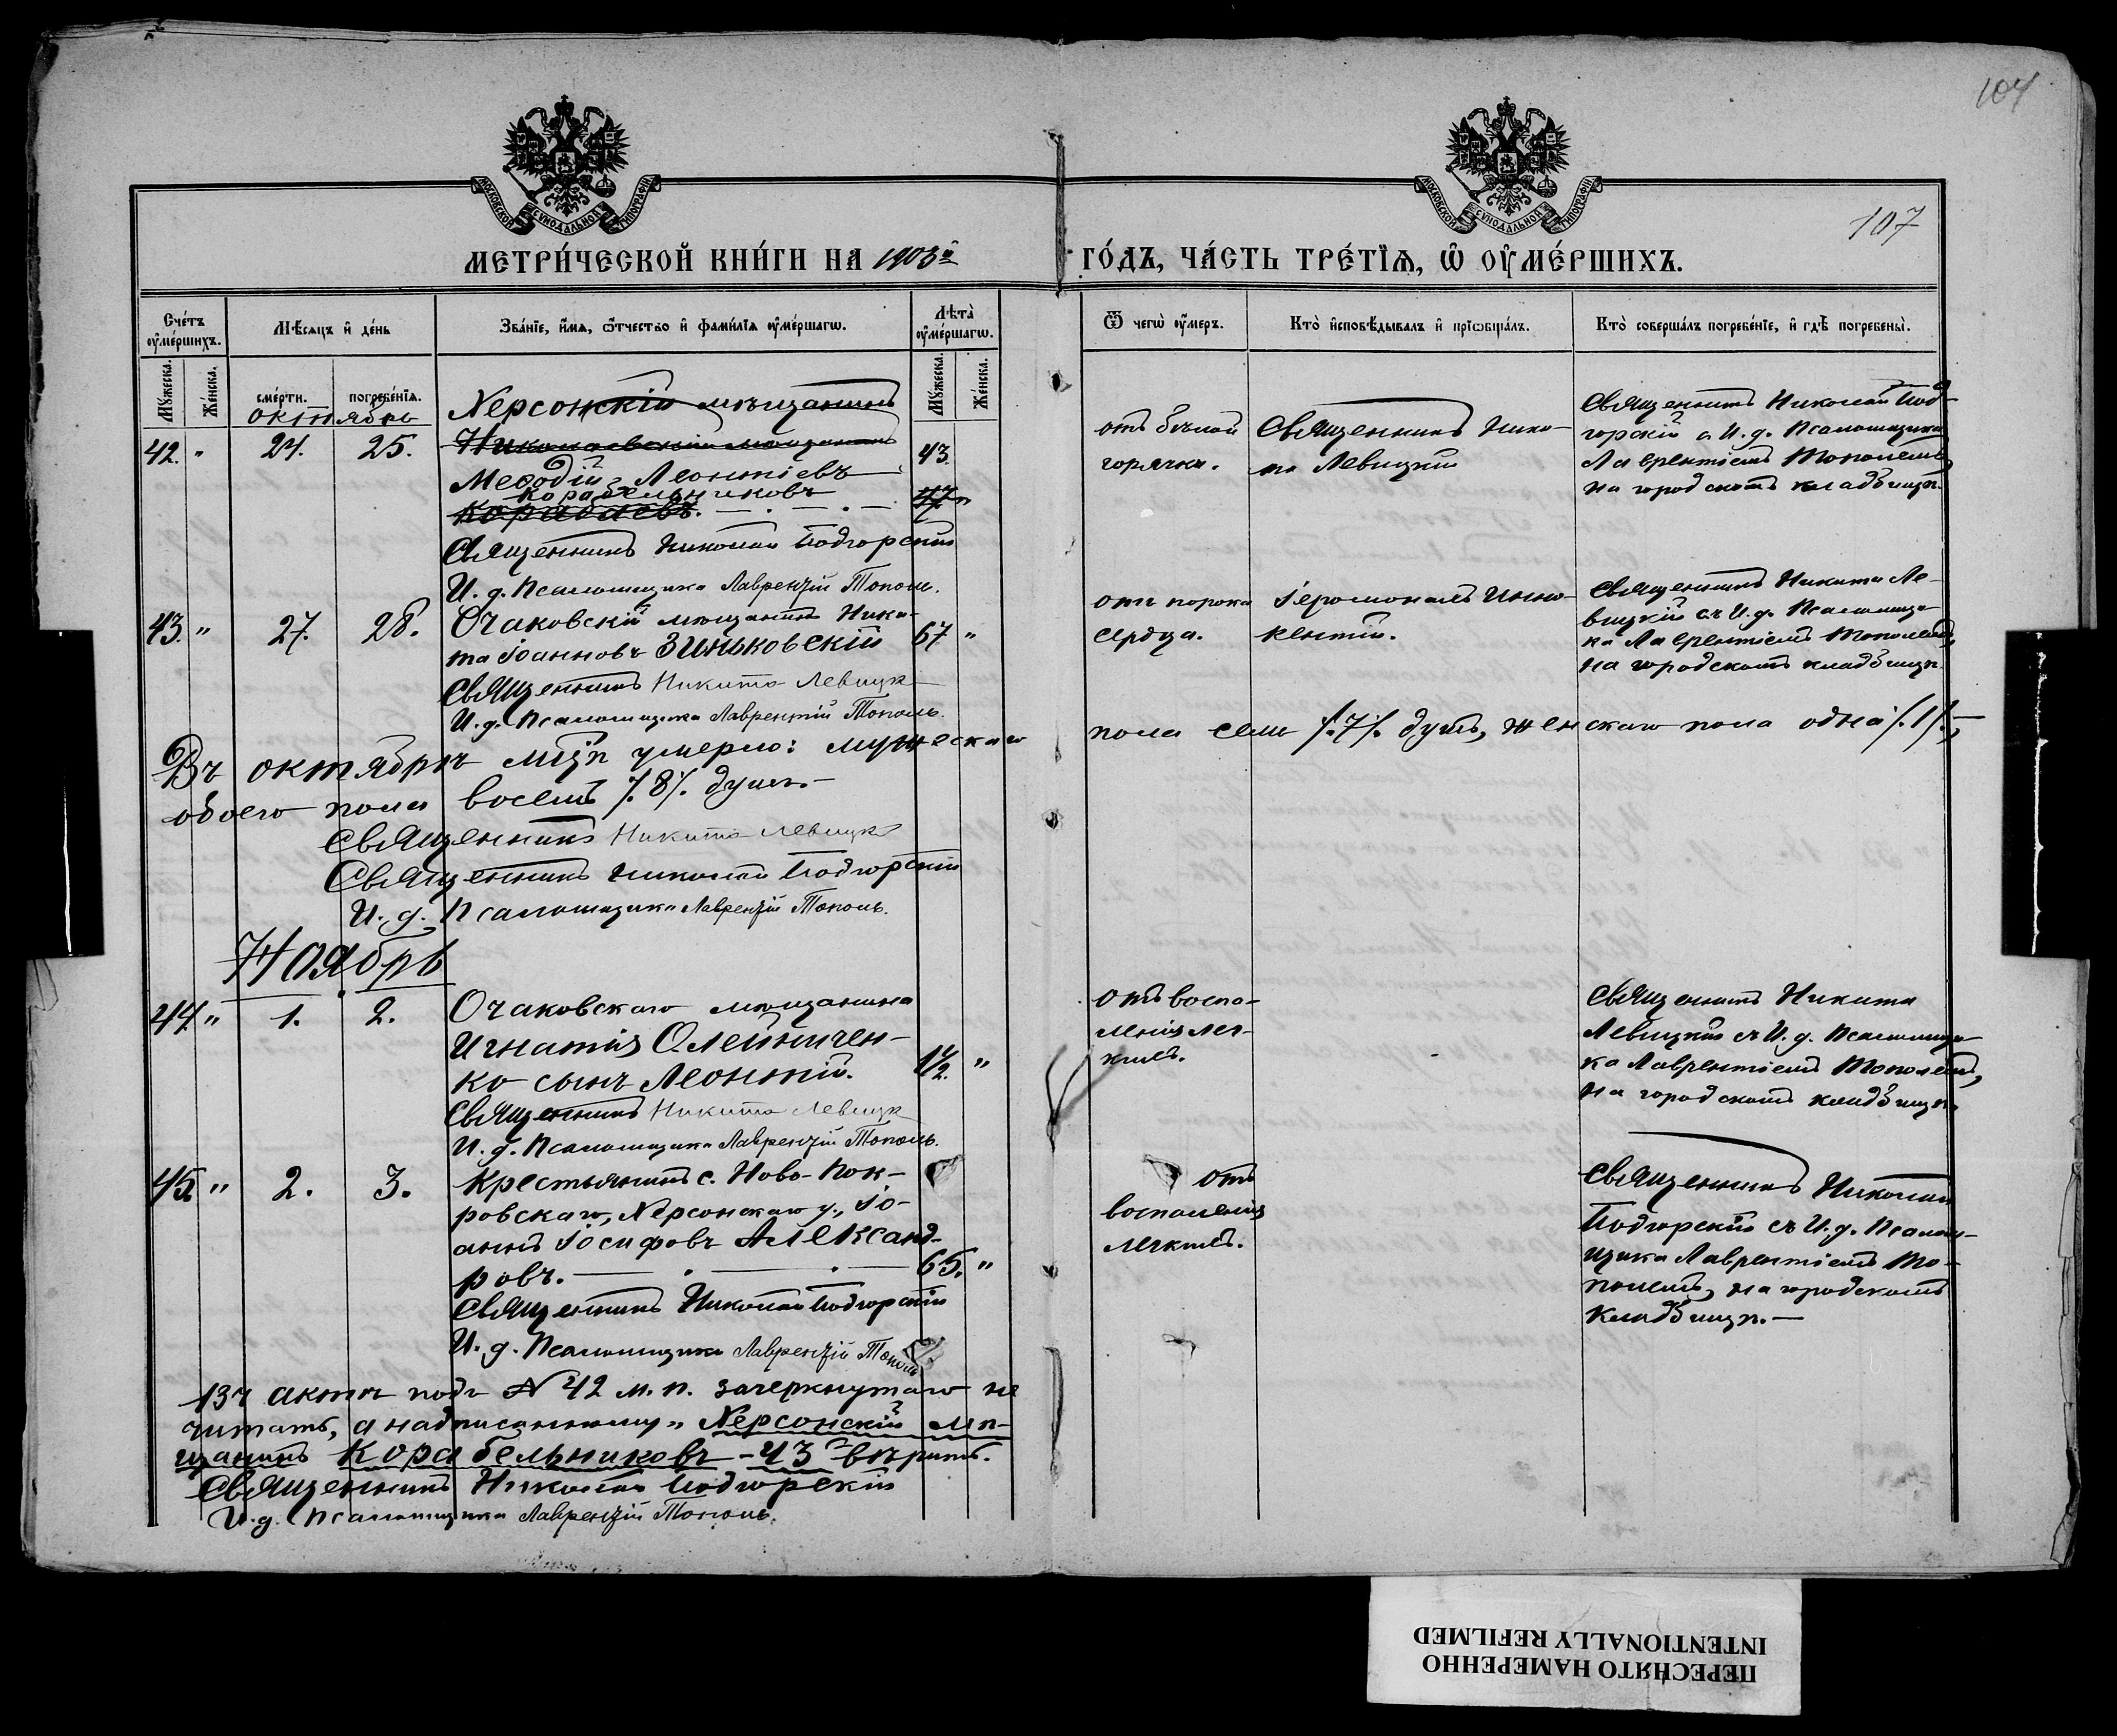 104
107
МОСКОВСКОЙ СѴНОДАЛЬНОЙ ТИПОГРАФІИ
МОСКОВСКОЙ СѴНОДАЛЬНОЙ ТИПОГРАФІИ
МЕТРИ́ЧЕСКОЙ КНИ́ГИ НА 1903й ГО́ДЪ, ЧА́СТЬ ТРЕ́ТЇѦ, Ѡ ОУ҆МЕ́РШИХЪ.
Сче́тъ оу҆ме́ршихъ.
Мꙋ́жеска.
Же́нска.
Мѣ́сѧцъ и҆ де́нь
сме́рти.
погребе́нїѧ.
Зва́нїе, и҆́мѧ, ѻ҆́тчество и҆ фами́лїѧ оу҆ме́ршагѡ.
Лѣ̀та оу҆ме́ршагѡ.
Мꙋ́жеска.
Же́нска.
Ѿ чегѡ̀ оу҆́меръ.
Кто̀ и҆сповѣ́дывалъ и҆ прїѡбща́лъ.
Кто̀ соверша́лъ погребе́нїе, и҆ гдѣ̀ погребены̀.
октябрь
42. " 24. 25.
Херсонскій мѣщанинъ
Николаевскій мѣщанинъ
Меѳодій Леонтіевъ
Корабельниковъ
Кораблевъ.
43.
47 "
Священникъ Николай Подгорскій
И. д. Псаломщика Лаврентій Тополь.
отъ бѣлой
горячки.
Священникъ Ники-
та Левицкій
Священникъ Николай Под-
горскій с И. д. Псаломщика
Лаврентіемъ Тополемъ,
на городскомъ кладбищѣ.
43. " 27. 28.
Очаковскій мѣщанинъ Ники-
та Іоанновъ Зиньковскій 67 "
Священникъ Никита Левицк
И. д. Псаломщика Лаврентій Тополь.
отъ порока
сердца.
Іеромонахъ Инно-
кентій.
Священникъ Никита Ле-
вицкій съ И. д. Псаломщи-
ка Лаврентіемъ Тополемъ,
на городскомъ кладбищѣ.
Въ октябрѣ мцѣ умерло: мужескаго пола семь /.7/. душъ, женскаго пола одна /.1/. -,
обоего пола восемь /.8/. душъ. -
Священникъ Никита Левицк
Священникъ Николай Подгорскій
И. д. Псаломщика Лаврентій Тополь.
Ноябрь
44. " 1. 2.
Очаковскаго мѣщанина
Игнатія Олейничен-
ко сынъ Леонтій. 1 1/2. "
Священникъ Никита Левицк
И. д. Псаломщика Лаврентій Тополь.
отъ воспа-
ленія лег-
кихъ.
Священникъ Никита
Левицкій съ И. д. Псаломщи-
ка Лаврентіемъ Тополемъ,
на городскомъ кладбищѣ.
45. " 2. 3.
Крестьянинъ с. Ново-Пок-
ровскаго, Херсонскаго у., Іо-
аннъ Іосифовъ Александ-
ровъ. 65. "
Священникъ Николай Подгорскій
И. д. Псаломщика Лаврентій Тополь
отъ
воспаленія
легкихъ.
Священникъ Николай
Подгорскій съ И. д. Псалом-
щика Лаврентіемъ То-
полемъ, на городскомъ
кладбищѣ. -
Въ актѣ подъ № 42 м. п. зачеркнутаго не
читать, а надписанному „Херсонскій мѣ-
щанинъ Корабельниковъ - 43" вѣрить.
Священникъ Николай Подгорскій
И. д. Псаломщика Лаврентій Тополь.
ПЕРЕСНЯТО НАМЕРЕННО
INTENTIONALLY REFILMED